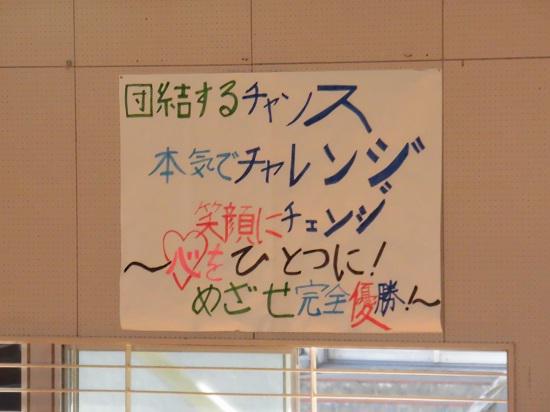 団結するチャンス
本気でチャレンジ
笑顔にチェンジ
～心をひとつに!
めざせ完全優勝!～